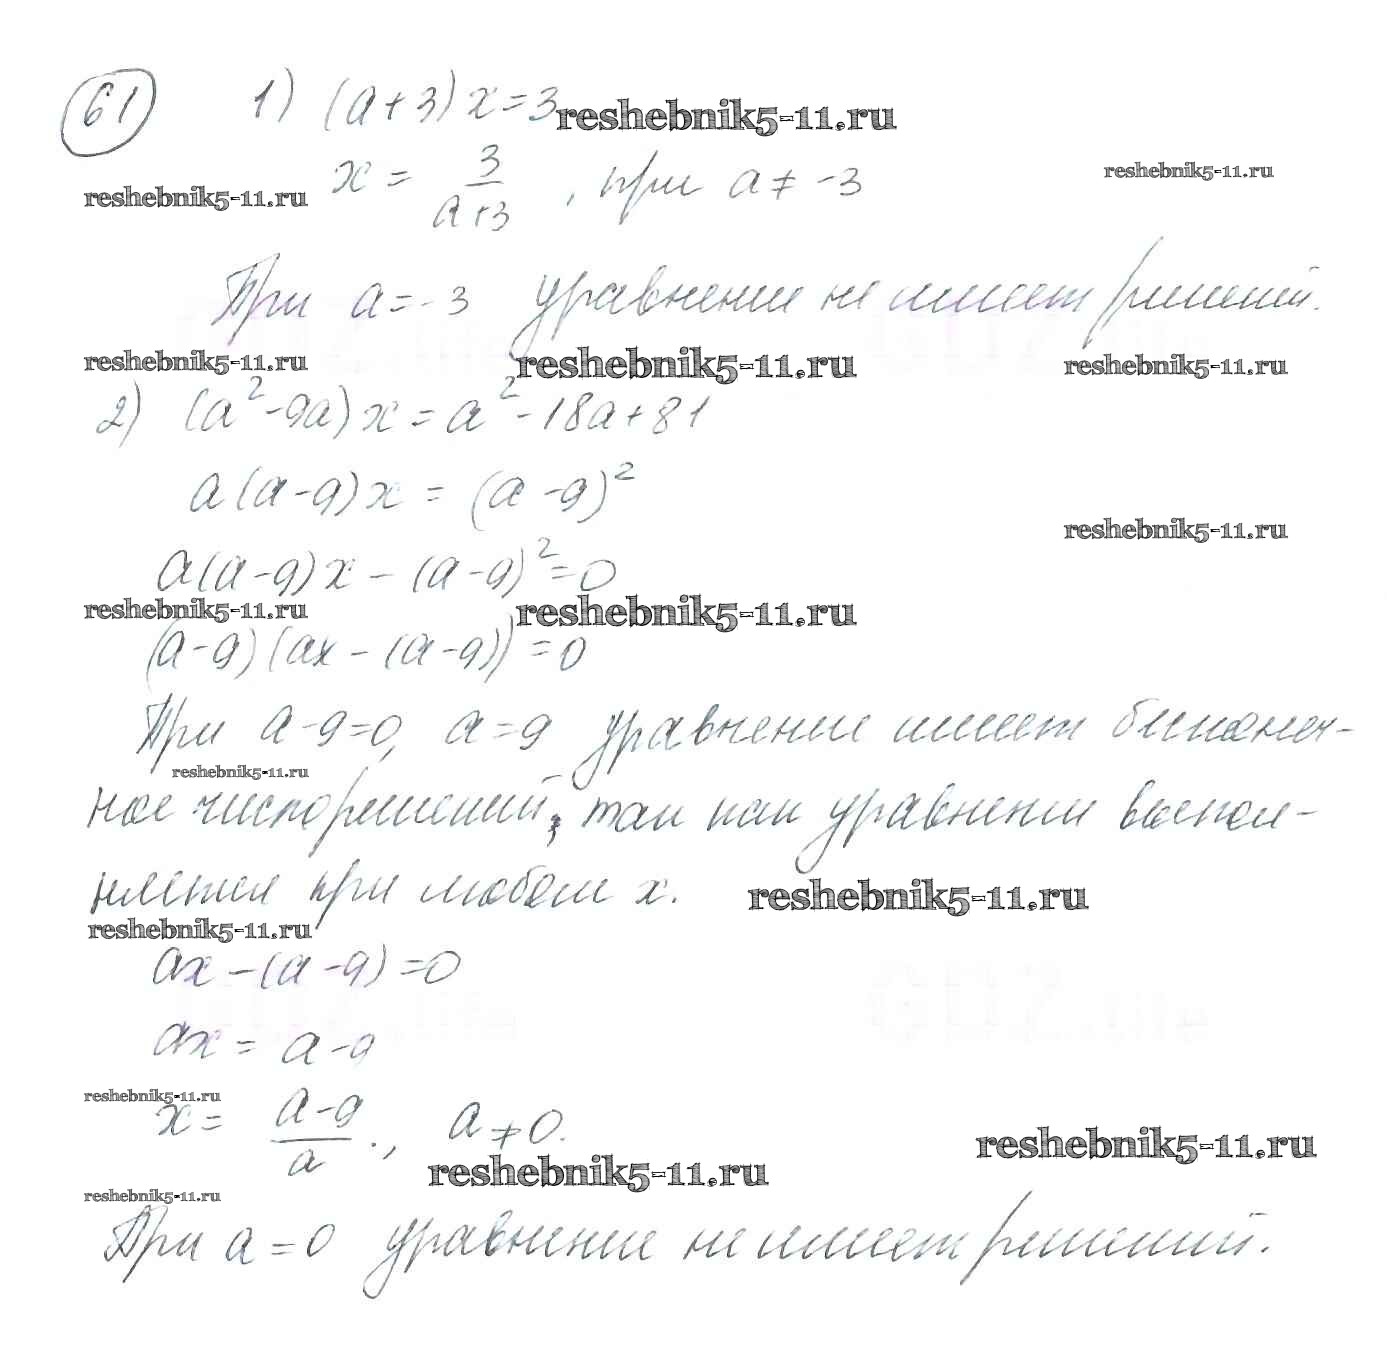 61 1) (a+3)x=3 reshebnik5-11.ru
reshebnik5-11.ru x = 3/(a+3), при a ≠ -3 reshebnik5-11.ru
При a=-3 уравнение не имеет решений.
reshebnik5-11.ru reshebnik5-11.ru reshebnik5-11.ru
2) (a²-9a)x=a²-18a+81
a(a-9)x = (a-9)²
reshebnik5-11.ru
a(a-9)x-(a-9)²=0
reshebnik5-11.ru reshebnik5-11.ru
(a-9)(ax-(a-9))=0
При a-9=0, a=9 уравнение имеет бесконеч-
reshebnik5-11.ru
ное число решений, так как уравнение выпол-
няется при любом x. reshebnik5-11.ru
reshebnik5-11.ru
ax-(a-9)=0
ax = a-9
reshebnik5-11.ru
x = (a-9)/a, a≠0.
reshebnik5-11.ru reshebnik5-11.ru
reshebnik5-11.ru
При a=0 уравнение не имеет решений.